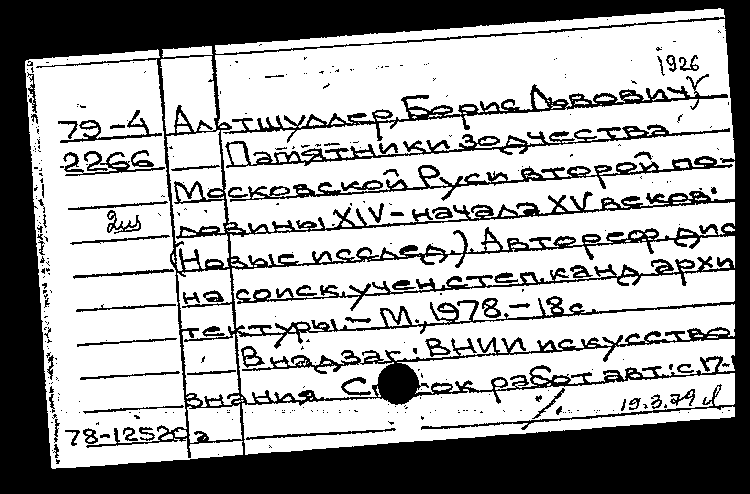 1926
79-4 Альтшуллер, Борис Львович
2266 Памятники зодчества
Московской Руси второй по-
2из ловины XIV - начала XV веков:
(Новые исслед.). Автореф. дис
на соиск. учен. степ. канд архи
тектуры. - М., 1978. - 18 с.
В надзаг.: ВНИИ искусство
знания. С ок работ авт.: с. 17-
19.3.79
78-12520а